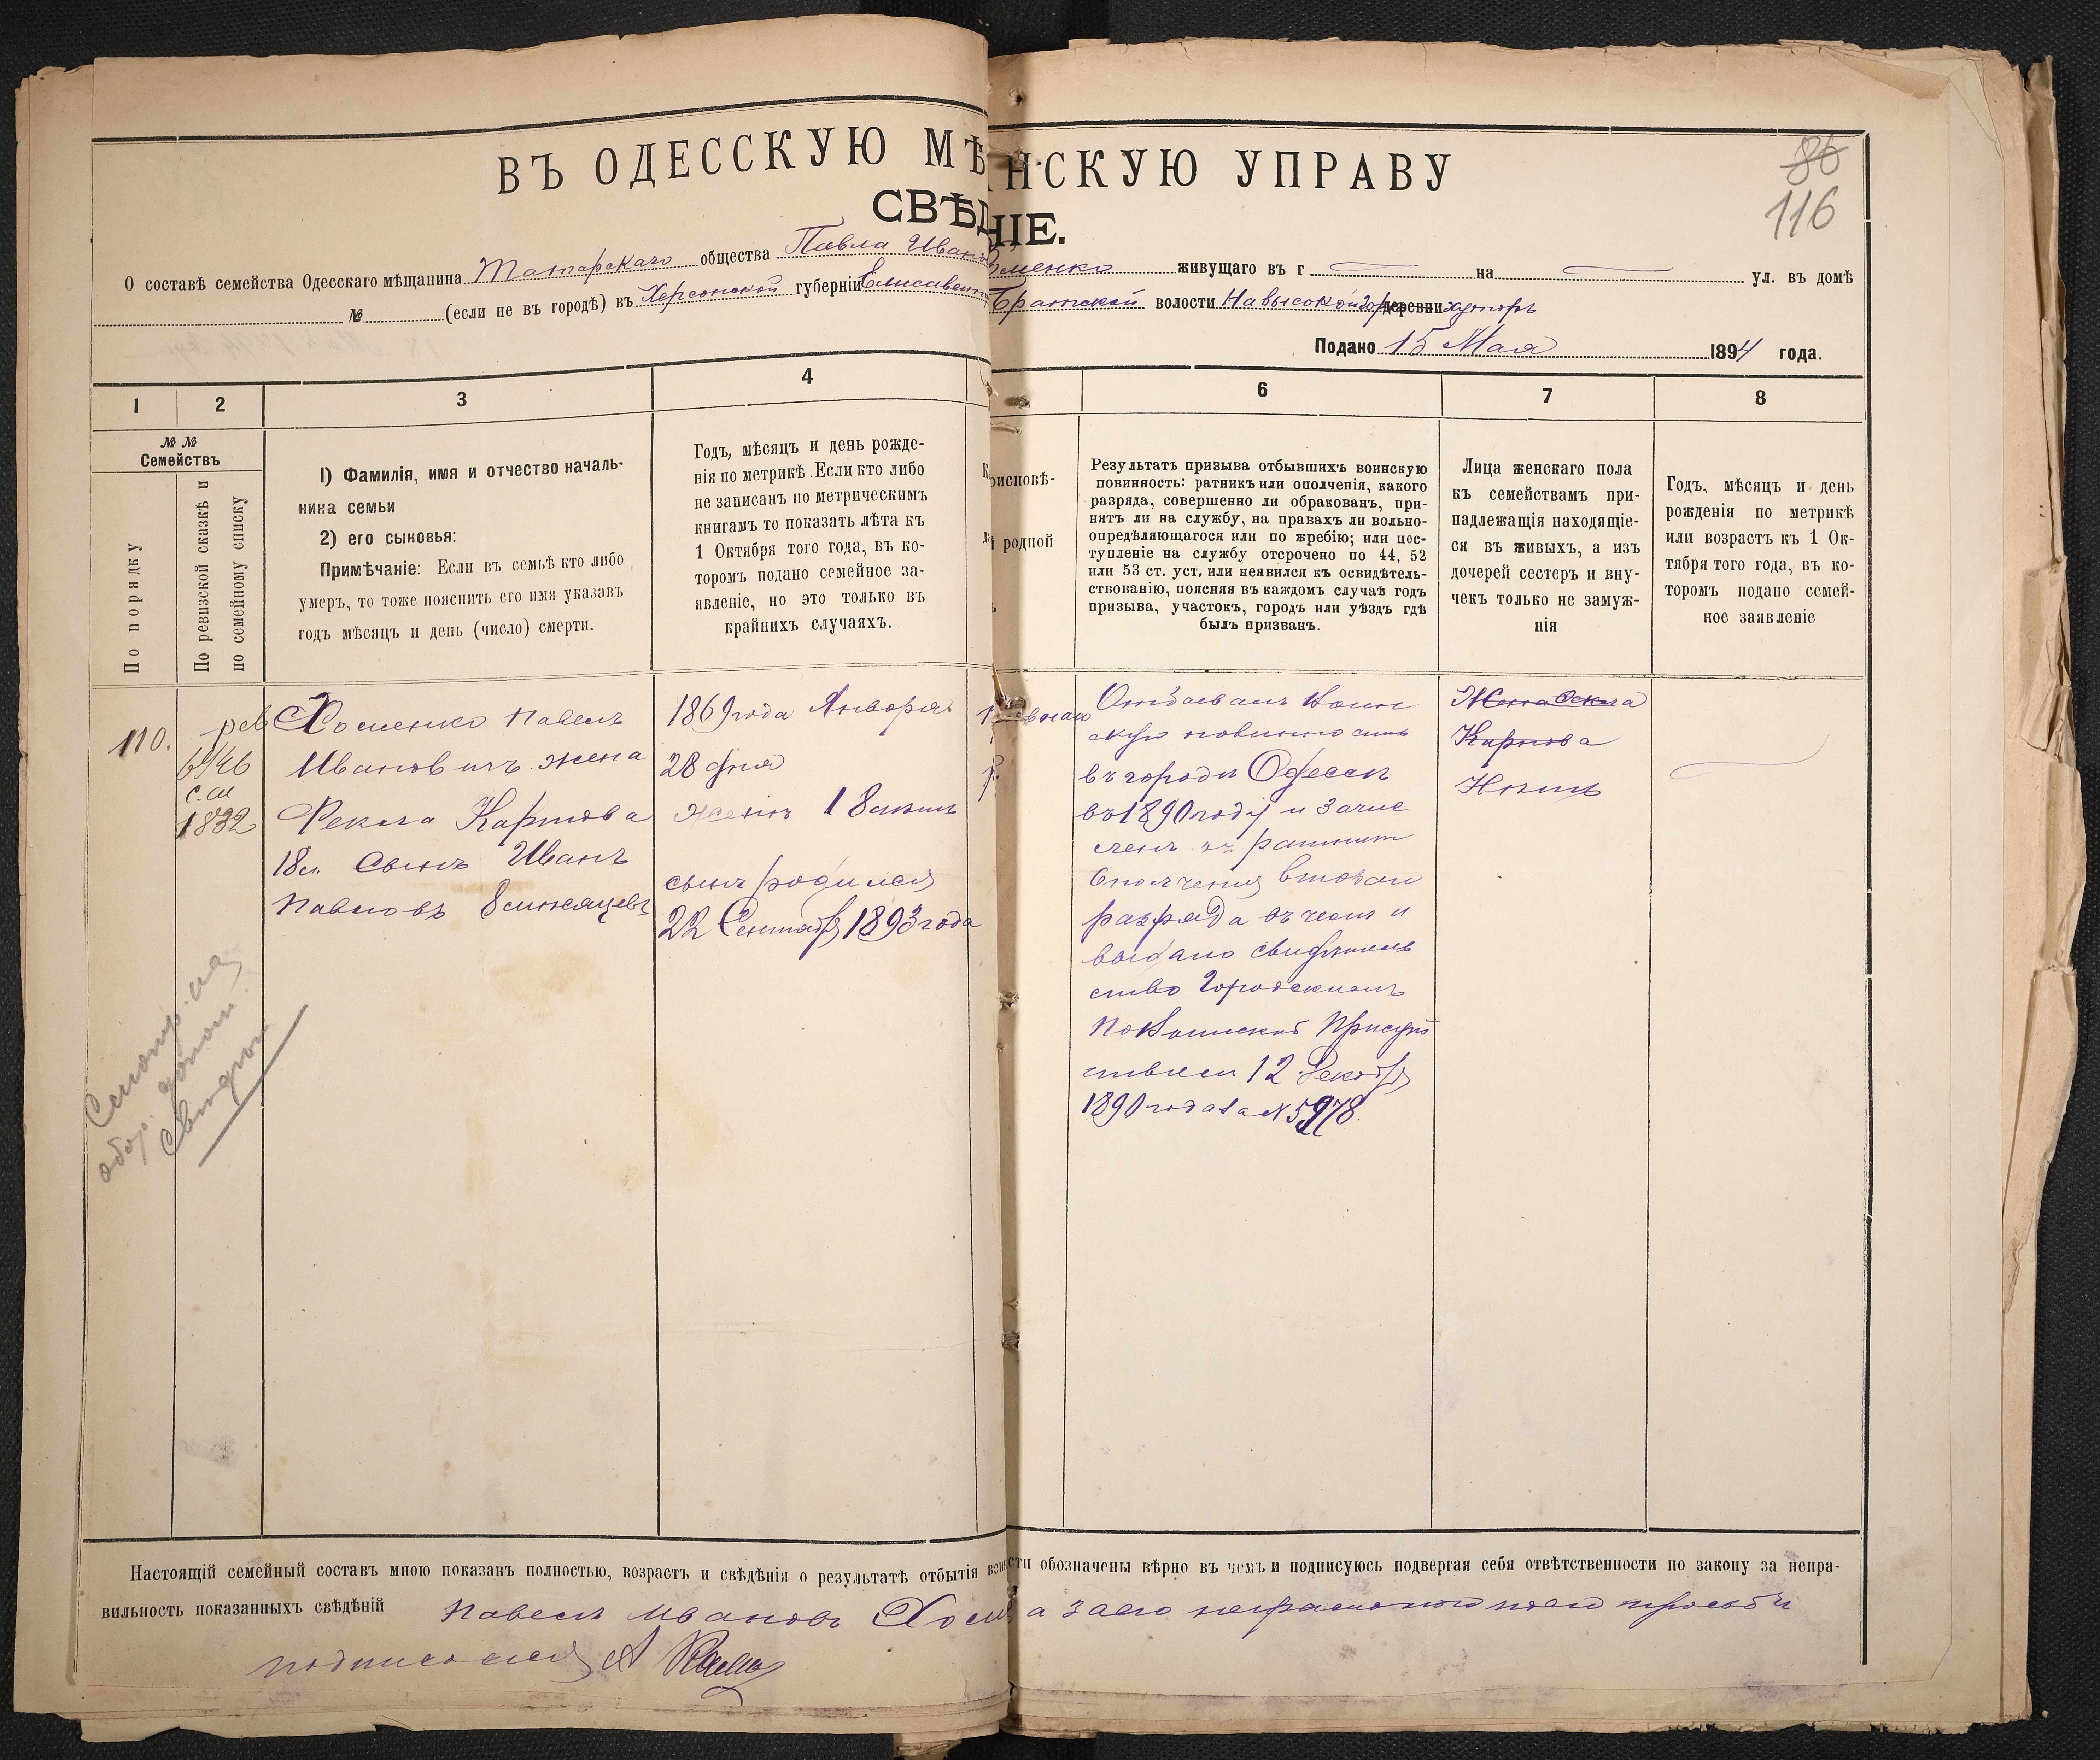 ВЪ ОДЕССКУЮ МѢ НСКУЮ УПРАВУ
86
116
СВѢД НІЕ.
О составѣ семейства Одесскаго мѣщанина Татарскаго общества Павла Ивано менко живущаго въ г на ул. въ домѣ
№ (если не въ городѣ) въ Херсонской губерніи Елисавет Братской волости Навысокой горѣ деревни хуторъ
Подано 15 Мая 1894 года.
1 2 3 4 6 7 8
№ №
Семействъ
По порядку
По ревизской сказкѣ и
по семейному списку
1) Фамилія, имя и отчество началь-
ника семьи
2) его сыновья:
Примѣчаніе: Если въ семьѣ кто либо
умеръ, то тоже пояснить его имя указавъ
годъ мѣсяцъ и день (число) смерти.
Годъ, мѣсяцъ и день рожде-
нія по метрикѣ. Если кто либо
не записанъ по метрическимъ
книгамъ то показать лѣта къ
1 Октября того года, въ ко-
торомъ подано семейное за-
явленіе, но это только въ
крайнихъ случаяхъ.
роисповѣ-
родной
Результатъ призыва отбывшихъ воинскую
повинность: ратникъ или ополченія, какого
разряда, совершенно ли обракованъ, при-
нятъ ли на службу, на правахъ ли вольно-
опредѣляющагося или по жребію; или пос-
тупленіе на службу отсрочено по 44, 52
или 53 ст. уст. или неявился къ освидѣтель-
ствованію, поясняя въ каждомъ случаѣ годъ
призыва, участокъ, городъ или уѣздъ гдѣ
былъ призванъ.
Лица женскаго пола
къ семействамъ при-
надлежащія находящіе-
ся въ живыхъ, а изъ
дочерей сестеръ и вну-
чекъ только не замуж-
нія
Годъ, мѣсяцъ и день
рожденія по метрикѣ
или возрастъ къ 1 Ок-
тября того года, въ ко-
торомъ подано семей-
ное заявленіе
110.
рев
6946
с. сп
1832
Хоменко Павелъ
Ивановичъ жена
Фекла Карпова
18 л. Сынъ Иванъ
Павловъ 8 мѣсяцевъ
1869 года Января
28 дня
женѣ 18 лѣтъ
сынъ родился
22 Сентябр 1893 года
Отбывалъ воин
скую повинность
въ городѣ Одессѣ
въ 1890 году и зачис
ленъ въ ратники
Ополченія втораго
разряда въ чемъ и
выдано свидѣтель
ство Городскимъ
По Воинской Присут
ствіемъ 12 Декабр
1890 года за № 5978.
Жена Фекла
Карпова
Нѣтъ
Смотр. на
обор. допол.
Настоящій семейный составъ мною показанъ полностью, возрастъ и свѣдѣнія о результатѣ отбытія вои сти обозначены вѣрно въ чемъ и подписуюсь подвергая себя отвѣтственности по закону за непра-
вильность показанныхъ свѣдѣній Павелъ Ивановъ Хом а за его неграмотного по его просьбѣ
подписался А